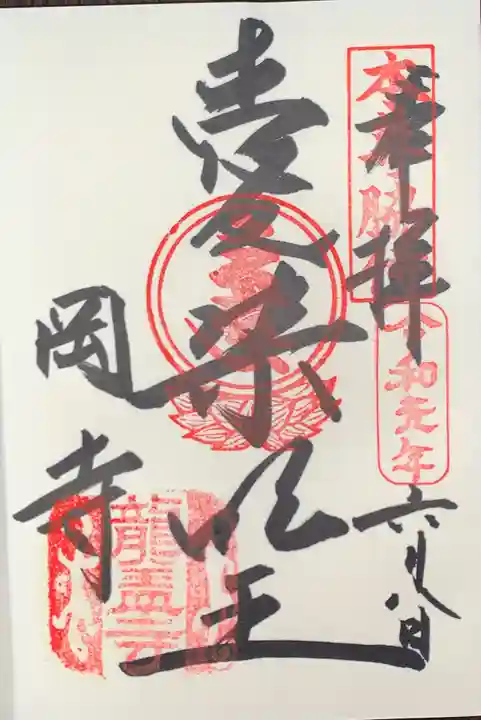 奉拝
令和元年
六月八日
愛染明王
岡寺
龍蓋寺